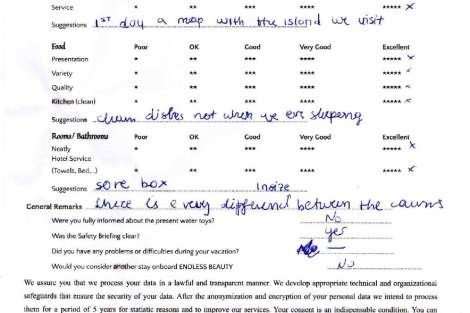 Service * ** *** **** ***** X
Suggestions 1ST day a map with the island we visit
Food Poor OK Good Very Good Excellent
Presentation * ** *** **** ***** X
Variety * ** *** **** ***** X
Quality * ** *** **** ***** X
Kitchen (clean) * ** *** **** ***** X
Suggestions dishes not when we are sleeping
Rooms/ Bathrooms Poor OK Good Very Good Excellent
Neatly * ** *** **** ***** X
Hotel Service
(Towels, Bed...) * ** *** **** ***** X
Suggestions box
General Remarks there is a very different between the
Were you fully informed about the present water toys? No
Was the Safety Briefing clear? yes
Did you have any problems or difficulties during your vacation? —
Would you consider another stay onboard ENDLESS BEAUTY No
We assure you that we process your data in a lawful and transparent manner. We develop appropriate technical and organizational
safeguards that ensure the security of your data. After the anonymization and encryption of your personal data we intend to process
them for a period of 5 years for statistic reasons and to improve our services. Your consent is an indispensable condition. You can